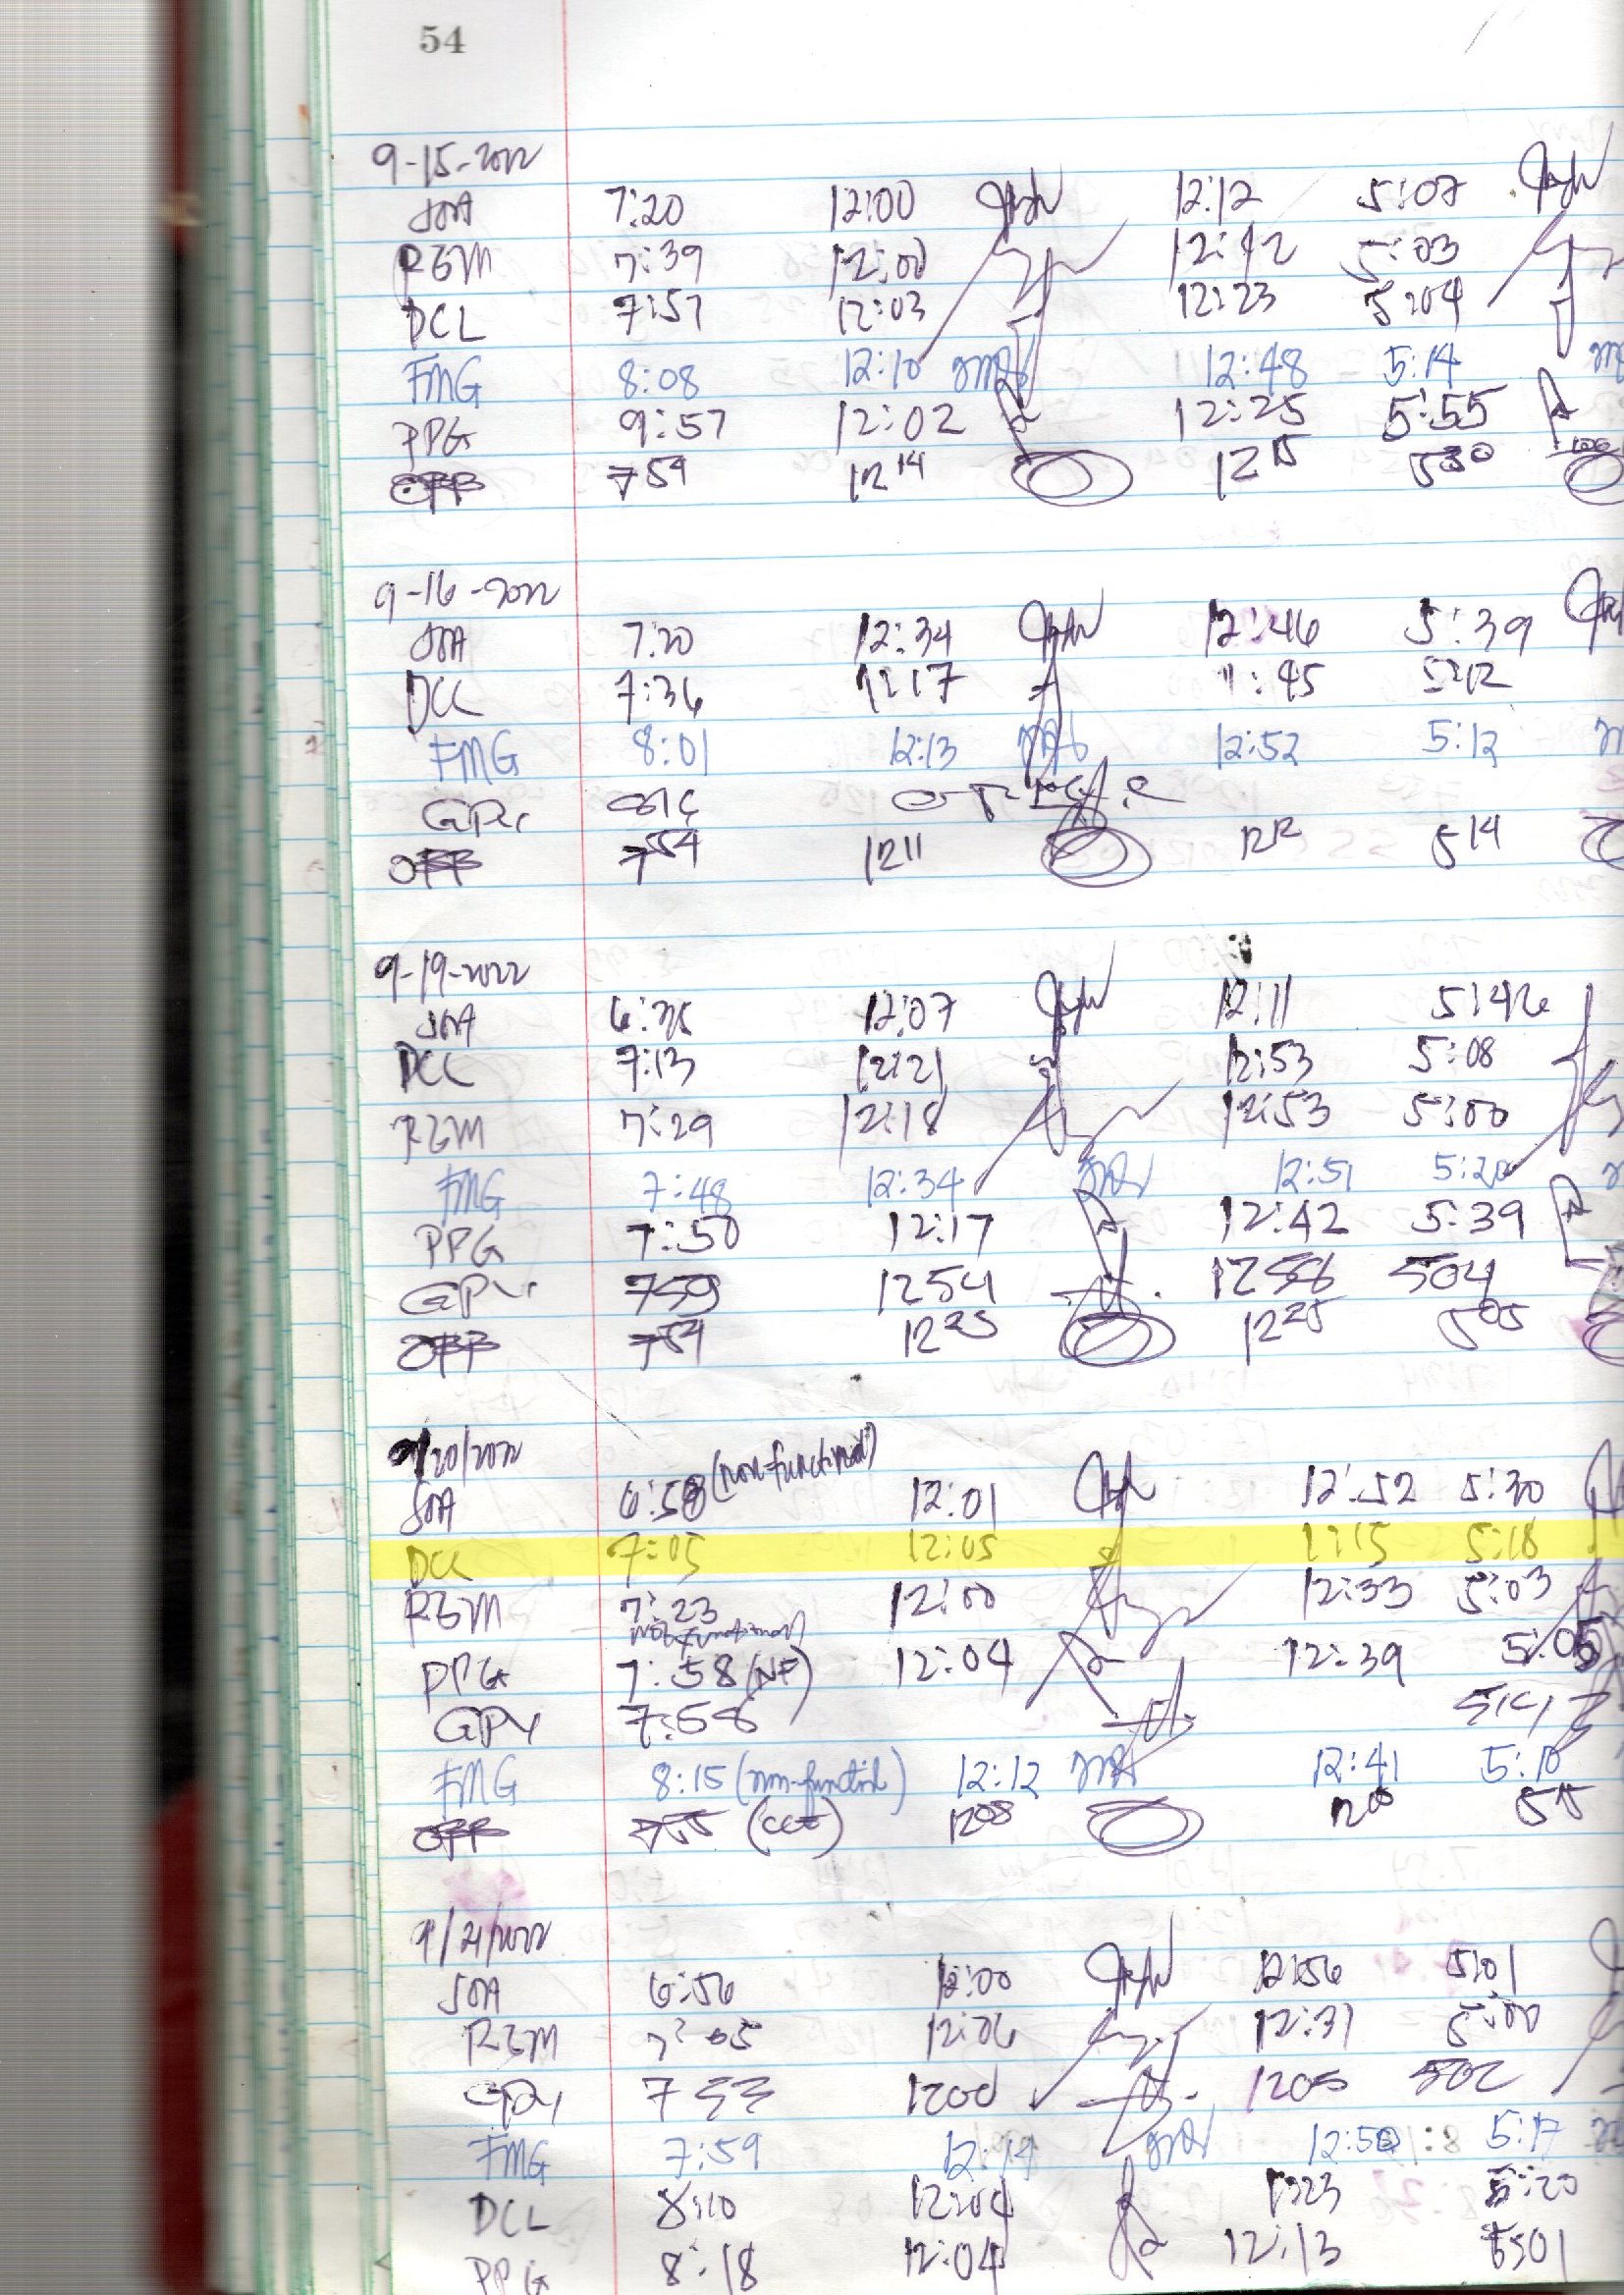 54
9-15-2022
JOA 7:20 12:00 12:12 5:07
RGM 7:39 12:00 12:42 5:03
DCL 7:57 12:03 12:23 5:04
FMG 8:08 12:10 12:48 5:14
PPG 9:57 12:02 12:25 5:55
754 1214 1215 530
9-16-2022
JOA 7:20 12:34 12:46 5:39
DCL 7:36 12:17 1:45 5:12
FMG 8:01 12:13 12:52 5:12
GPY
754 1211 1212 514
9-19-2022
JOA 12:07 12:11 5:46
DCL 7:13 12:21 12:53 5:08
RGM 7:29 12:18 12:53 5:00
FMG 7:48 12:34 12:51 5:20
PPG 7:50 12:17 12:42 5:39
GPY 759 1254 504
754 1225 1225 505
9/20/2022
JOA 6:58 (non-functional) 12:01 12:52 5:30
DCL 7:05 12:05 1:15 5:18
RGM 7:23 12:00 12:33 5:03
PPG 7:58 (NF) 12:04 12:39 5:05
GPY 7:58
FMG 8:15 12:12 12:41 5:10
755 1208
9/21/2022
JOA 6:56 12:00 12:56 5:01
RGM 7:05 12:06 12:31 5:00
GPY 753 1200 1205 502
FMG 7:59 12:14 5:17
DCL 8:10 12:04 1:23 5:20
PPG 8:18 12:04 12:13 5:01